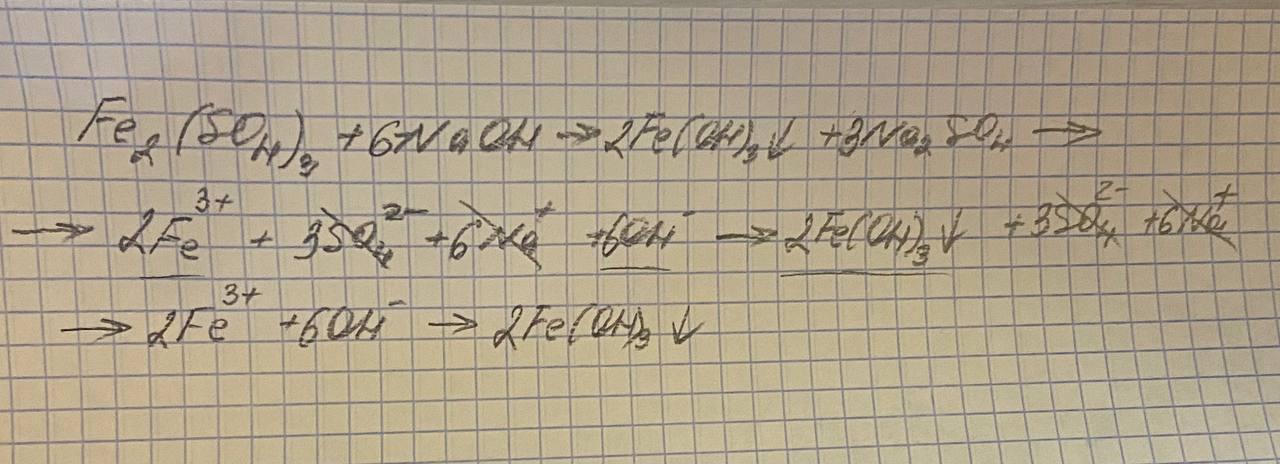 Fe₂(SO₄)₃ + 6NaOH → 2Fe(OH)₃↓ + 3Na₂SO₄ →
→ 2Fe³⁺ + 3SO₄²⁻ + 6Na⁺ + 6OH⁻ → 2Fe(OH)₃↓ + 3SO₄²⁻ + 6Na⁺
→ 2Fe³⁺ + 6OH⁻ → 2Fe(OH)₃↓